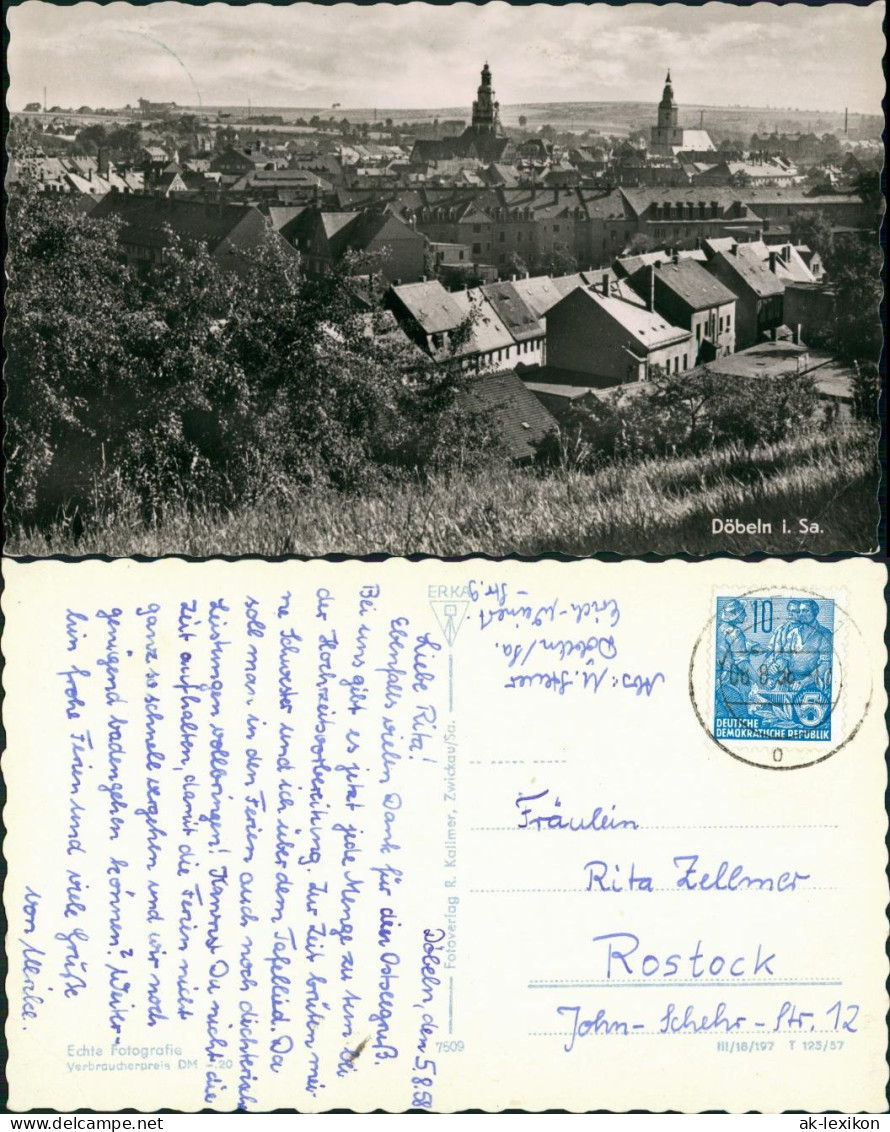 Döbeln i. Sa.
Döbeln, den 5.8.58
Liebe Rita!
Ebenfalls vielen Dank für den Ostseegruß.
Bei uns gibt es jetzt jede Menge zu tun bei
der Hochzeitsvorbereitung. Zur Zeit brüten mei-
ne Schwester und ich über dem Tafellied. Da
soll man in den Ferien auch noch dichterisch
Leistungen vollbringen! Kannst Du nicht die
Zeit aufhalten, damit die Ferien nicht
ganz so schnell vergehen und wir noch
genügend badengehen können? Weiter-
hin frohe Ferien und viele Grüße
von
ERKA
Abs: U. Steuer
Döbeln/Sa.
Erich-Weinert
-Str. 9
Fotoverlag R. Kallmer, Zwickau/Sa.
7509
10
5
DEUTSCHE
DEMOKRATISCHE REPUBLIK
Fräulein
Rita Zellmer
Rostock
John-Schehr-Str. 12
Echte Fotografie
Verbraucherpreis DM -.20
III/18/197 T 123/57
ak-lexikon